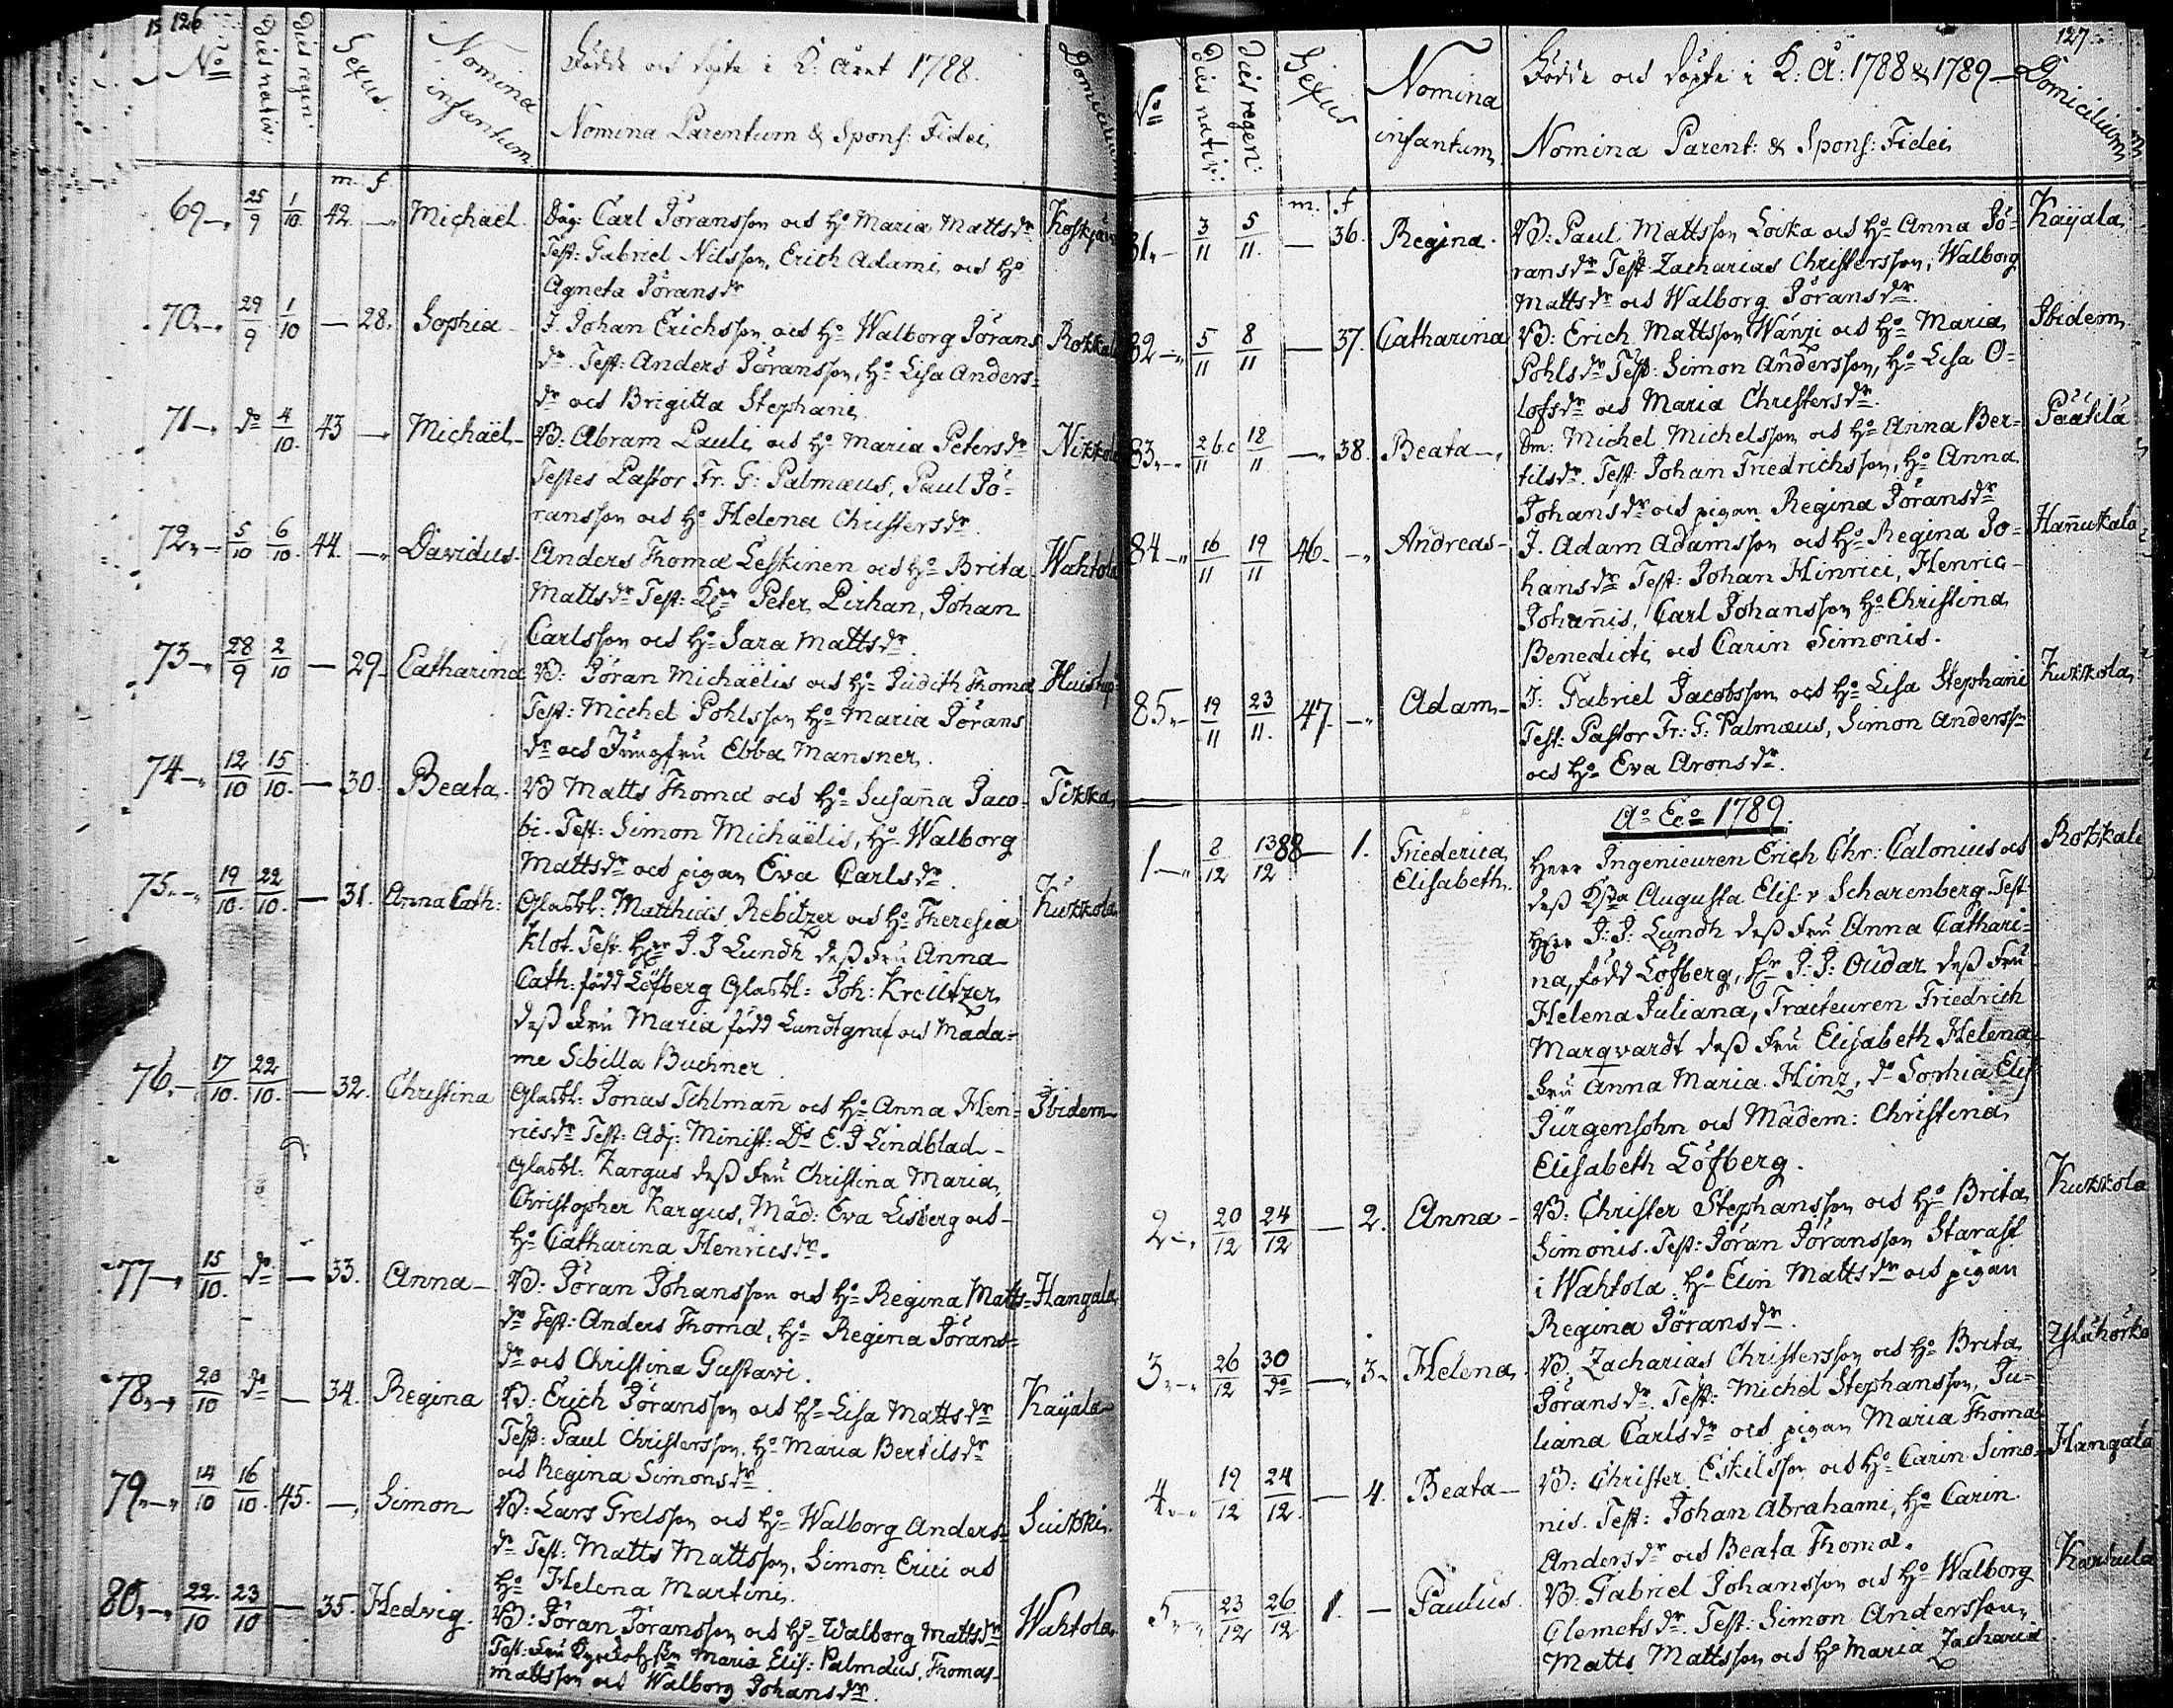 126
Nō Dies nativ: Dies regen: Sexus. Nomina infantum. Födde och döpte i K: Året 1788. Domicilium
Nomina Parentum & Spons: Fidei
m. f.
69 25/9 1/10 42 Michaël. Carl Jöransson och H:o Maria Mattsdr
Test: Gabriel Nilsson, Erich Adami och H:o
Agneta Jöransdr
70 29/9 1/10 — 28. Sophia J. Johan Erichsson och H:o Walborg Jörans
dr. Test: Anders Jöransson, H:o Lisa Anders=
dr och Brigitta Stephani
71 do 4/10. 43 Michaël B: Abram Pauli och H:o Maria Petersdr
Testes Pastor Fr. G: Palmæus, Paul Jö=
ransson och H:o Helena Christersdr
72 5/10 6/10. 44. Davidus. Anders Thomæ Leskinen och H:o Brita Wahtola
Mattsdr Test: Peter Pirhan, Johan
Carlsson och H:o Sara Mattsdr
73 28/9 2/10 — 29 Catharina B: Jöran Michaëlis och H:o Judith Thomæ
Test: Michel Pohlsson H:o Maria Jörans
dr och Jungfru Ebba Mansner.
74 12/10 15/10. — 30. Beata. B Matts Thomæ och H:o Susanna Jaco= Tikka
bi. Test: Simon Michaëlis, H:o Walborg
Mattsdr och pigan Eva Carlsdr
75 19/10. 22/10. — 31. Anna Cath: Glasbl: Matthias Rebitzer och H:o Theresia Kukkola
Klot. Test. Herr J. J Lundh dess Fru Anna
Cath: född Löfberg Glasbl: Joh: Kreützer
dess Fru Maria född Lundtgraf och Mada=
me Sibilla Buchner
76. 17/10. 22/10. — 32. Christina Glasbl: Jonas Tihlman och H:o Anna Hen= Ibidem
ricsdr Test: Adj: Minist: Ds E. J Lindblad
Glasbl: Kargus dess Fru Christina Maria,
Christopher Kargus, Mad: Eva Lisberg och
H:o Catharina Henricsdr.
77 15/10. do — 33. Anna B: Jöran Johansson och H:o Regina Matts= Hangala
dr Test: Anders Thomæ, H:o Regina Jörans=
dr och Christina Gustavi.
78 20/10 do — 34. Regina B: Erich Jöransson och H:o Lisa Mattsdr Kayala
Test: Paul Christersson, H:o Maria Bertilsdr
och Regina Simonsdr
79 14/10 16/10. 45. Simon B: Lars Grelsson och H:o Walborg Anders= Suikki
dr Test: Matts Mattsson, Simon Erici och
H:o Helena Martini.
80 22/10 23/10 — 35. Hedvig. B: Jöran Jöransson och H:o Walborg Mattsdr Wahtola
Test: Fru Maria Elis: Palmæus, Thomas
Mattsson och Walborg Johansdr.
127
Nō Dies nativ: Dies regen: Sexus Nomina infantum Födde och döpte i K: A: 1788 & 1789 Domicilium
Nomina Parent: & Spons: Fidei
m. f
81 3/11 5/11. — 36. Regina. B: Paul Mattsson Locka och H:o Anna Jö= Kayala
ransdr Test: Zacharias Christersson, Walborg
Mattsdr och Walborg Jöransdr.
82 5/11 8/11 — 37. Catharina B: Erich Mattsson Wänzi och H:o Maria Ibidem
Pohlsdr Test: Simon Andersson, H:o Lisa O=
lofsdr och Maria Christersdr.
83 18/11 38. Beata Michel Michelsson och H:o Anna Ber= Päätilä
tilsdr. Test: Johan Friedrichsson, H:o Anna
Johansdr och pigan Regina Jöransdr
84 16/11 19/11 46. Andreas J. Adam Adamsson och H:o Regina Jo= Hannukala
hansdr Test: Johan Hinrici, Henric
Johannis, Carl Johansson H:o Christina
Benedicti och Carin Simonis.
85 19/11 23/11. 47. Adam J: Gabriel Jacobsson och H:o Lisa Stephani Kukkola
Test: Pastor Fr: G: Palmæus, Simon Anderss=
och H:o Eva Aronsdr.
Ao Eco 1789.
1 8/12 13/12 88 — 1. Friederica Elisabeth. Herr Ingenieuren Erich Chr: Calonius och Rokkala
dess Augusta Elis v Scharenberg. Test:
Herr J: J: Lundh dess Fru Anna Cathari=
na, född Löfberg, Hr J: J: Oudar dess Fru
Helena Juliana, Tracteuren Friedrich
Marqvardt dess Fru Elisabeth Helena
Fru Anna Maria Hinz, do Sophia Elis
Jürgensohn och Madem: Christina
Elisabeth Löfberg.
2 20/12 24/12 — 2. Anna B: Christer Stephansson och H:o Brita Kukkola
Simonis. Test: Jöran Jöransson Starast
i Wahtola, H:o Elin Mattsdr och pigan
Regina Jöransdr.
3 26/12 30/do 3. Helena B, Zacharias Christersson och H:o Brita
Jöransdr. Test: Michel Stephansson, Ju=
liana Carlsdr och pigan Maria Thomæ
4 19/12 24/12. — 4. Beata B: Christer Eskilsson och H:o Carin Simo= Hangala
nis. Test: Johan Abrahami, H:o Carin
Andersdr och Beata Thomæ.
5 23/12 26/12 1. — Paulus. B: Gabriel Johansson och H:o Walborg Karkula
Clemetsdr. Test: Simon Andersson,
Matts Mattsson och H:o Maria Zachariæ